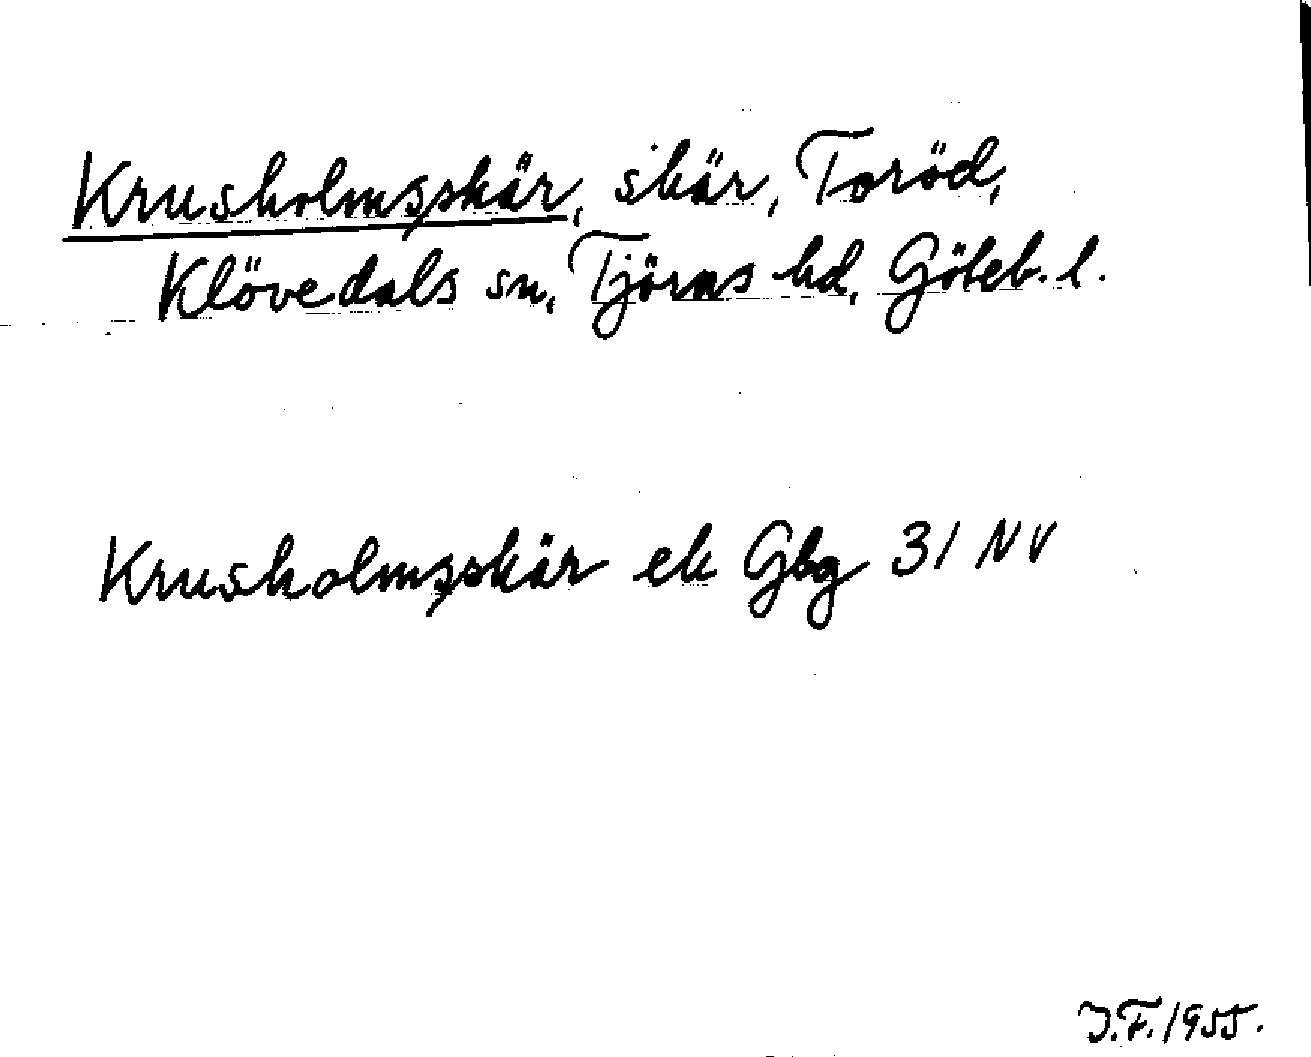 Krusholmsskär, skär, Toröd,
Klövedals sn, Tjörns hd, Göteb. l.
Krusholmsskär ek Gbg 31 NV
J.F. 1955.